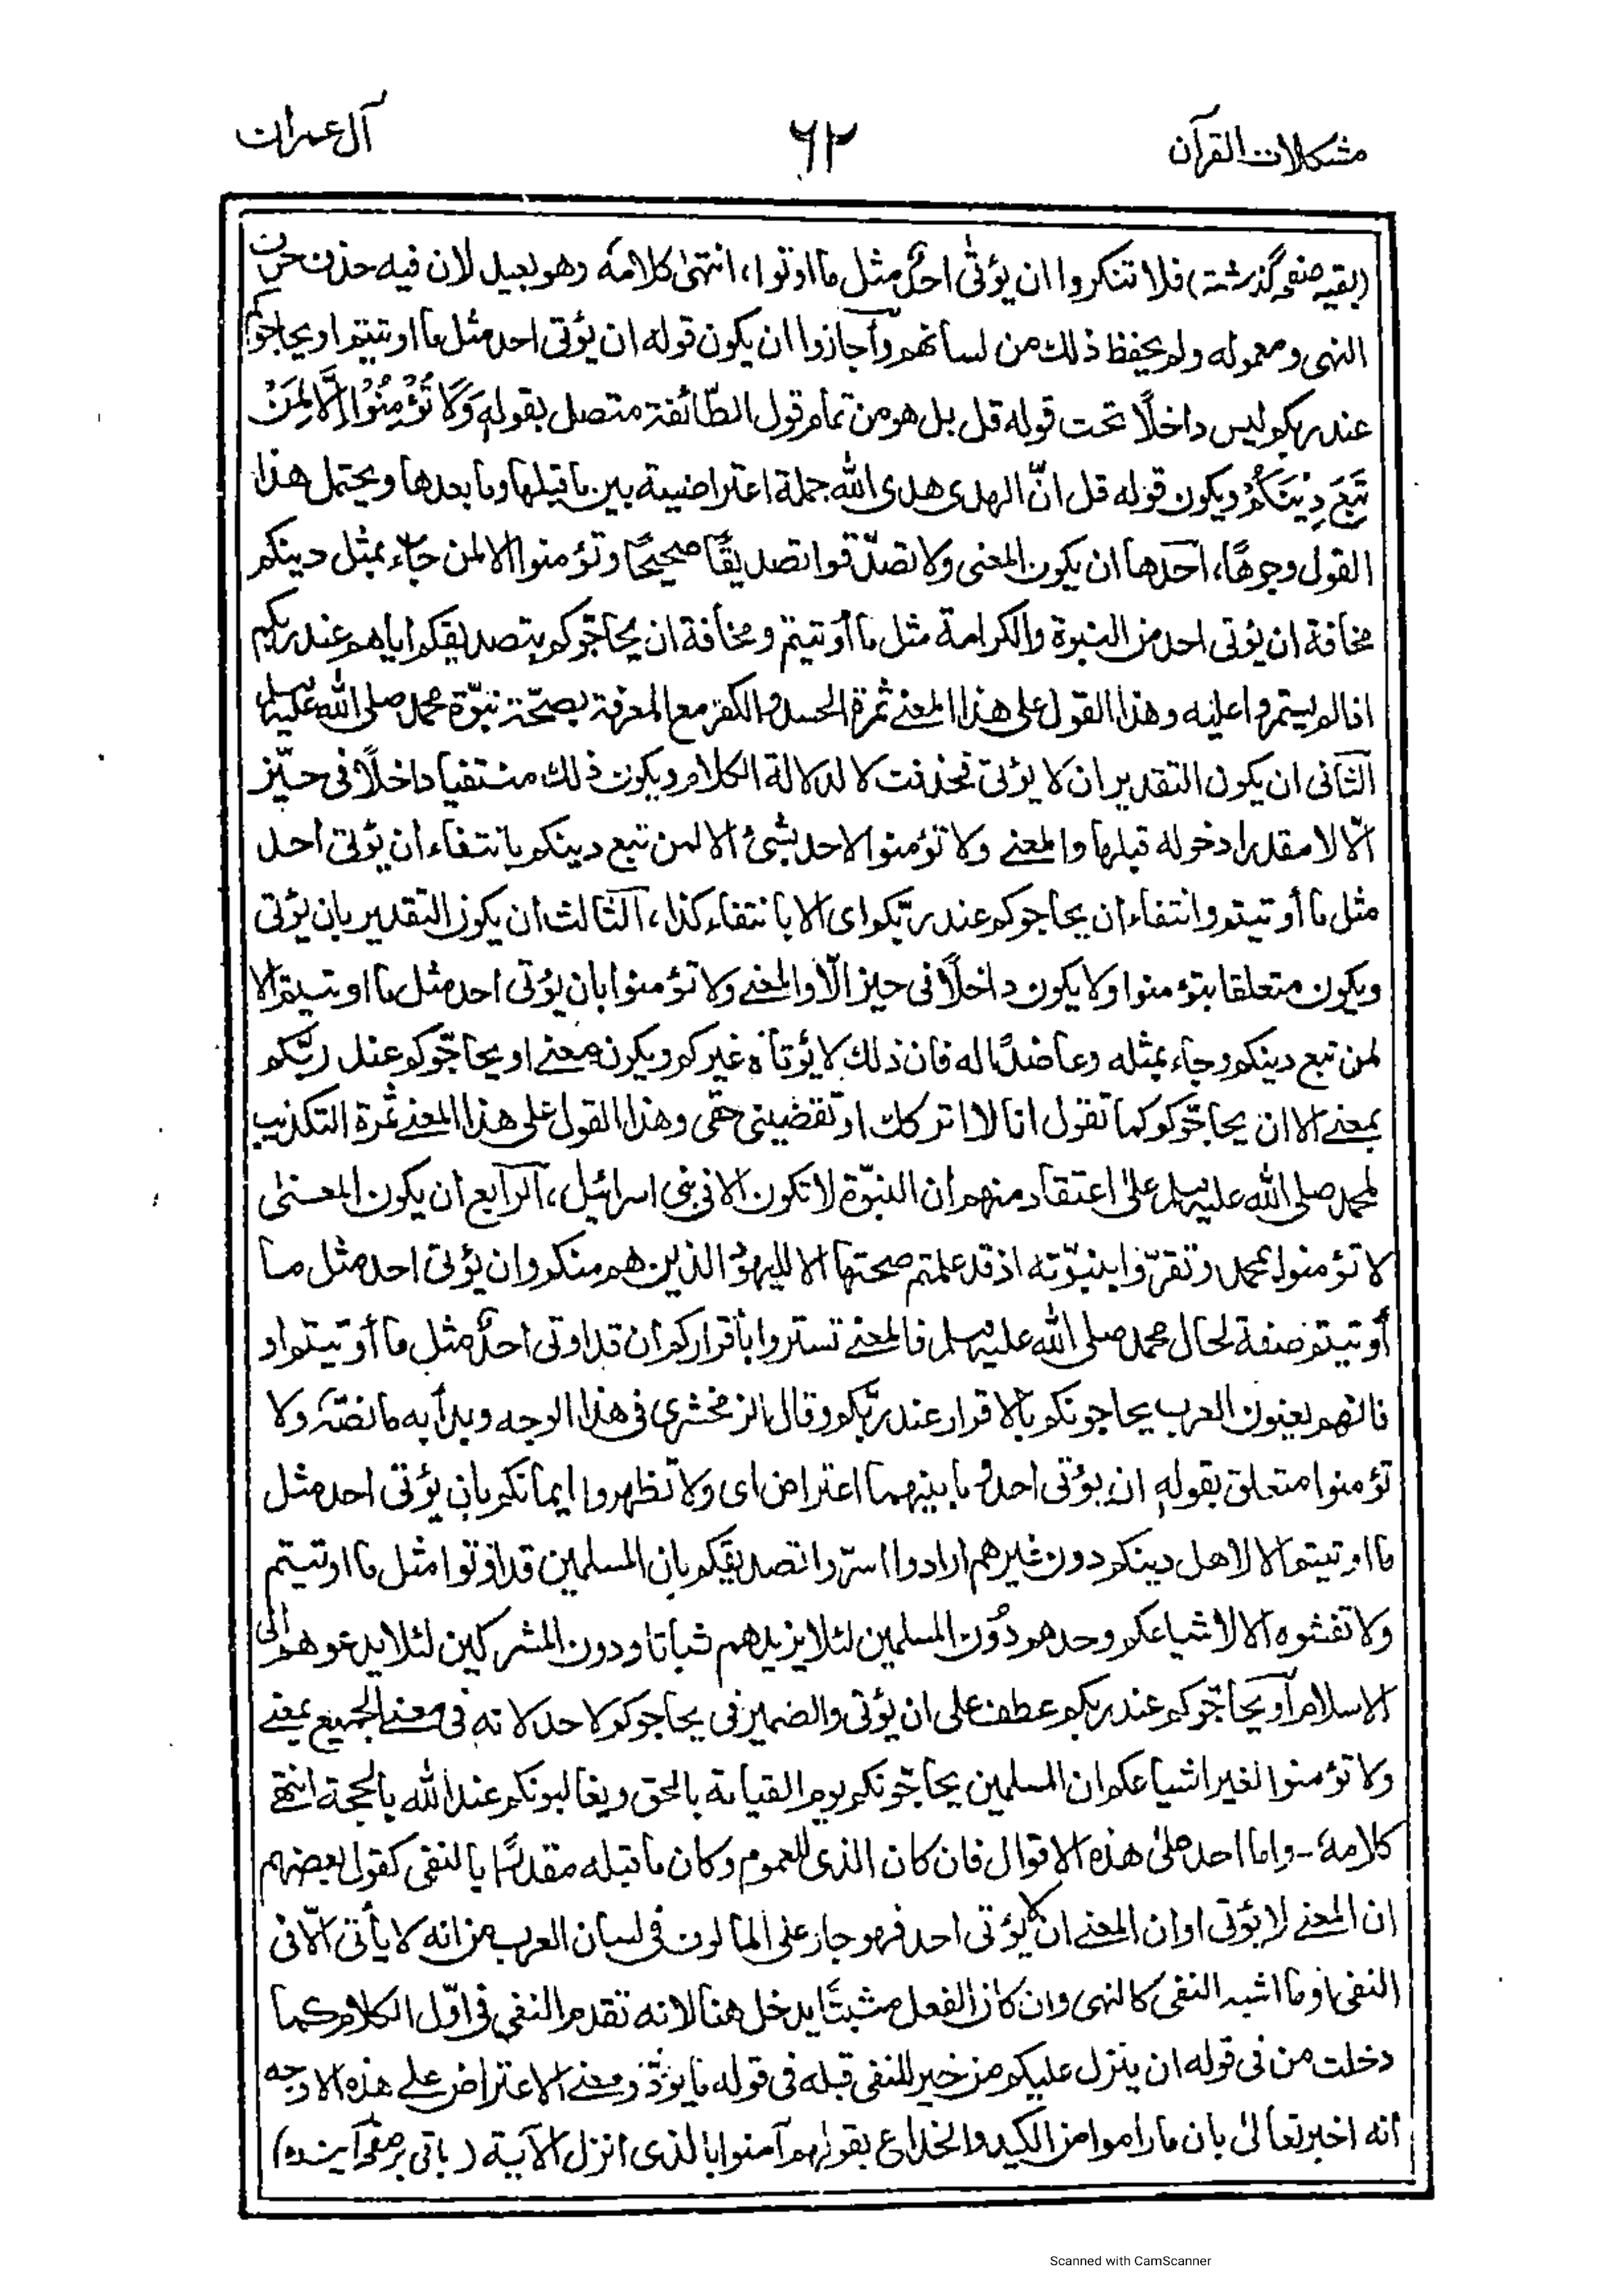 مشكلات القرآن
٦٢
آل عمران
(بقیہ صفحہ گذشتہ) فلا تنكروا ان يؤتى احدٌ مثل ما اوتوا، انتهىٰ كلامهٗ وهو بعيد لان فيه حذف حرف
النهى ومعموله ولم يحفظ ذلك من لسانهم وأجازوا ان يكون قوله ان يؤتى احد مثل ما اوتيتم او يحاجوكم
عند ربكم ليس داخلًا تحت قوله قل بل هو من تمام قول الطّائفة متصل بقوله وَلَا تُؤْمِنُوْا إِلَّا لِمَنْ
تَبِعَ دِيْنَكُمْ ويكون قوله قل انّ الهدى هدى الله جملة اعتراضية بين ما قبلها وما بعدها ويحتمل هذا
القول وجوهًا، احدها ان يكون المعنى ولا تصدّقوا تصديقًا صحيحًا وتؤمنوا الا لمن جاء بمثل دينكم
مخافة ان يؤتى احد من النبوة والكرامة مثل ما أوتيتم ومخافة ان يحاجّوكم بتصديقكم اياهم عند ربكم
اذا لم يستمروا عليه وهذا القول على هذا المعنے ثمرة الحسد والكفر مع المعرفة بصحّة نبوّة محمد صلى الله عليه وسلم
الثانى ان يكون التقدير ان لا يؤتى فحذفت لا لدلالة الكلام ويكون ذلك منتفيا داخلًا فى حيّز
الّا لا مقدرا دخوله قبلها والمعنے ولا تؤمنوا لاحد بشئ الا لمن تبع دينكم بانتفاء ان يؤتى احد
مثل ما أوتيتم وانتفاء ان يحاجوكم عند ربّكم اى الا بانتفاء كذا، الثالث ان يكون التقدير بان يؤتى
ويكون متعلقا بتؤمنوا ولا يكون داخلًا فى حيز الّا والمعنے ولا تؤمنوا بان يؤتى احد مثل ما اوتيتم الا
لمن تبع دينكم وجاء بمثله وعاضدًا له فان ذلك لا يؤتاه غيركم ويكون معنے او يحاجّوكم عند ربّكم
بمعنے الا ان يحاجّوكم كما تقول انا لا اتركك او تقضينى حقى وهذا القول على هذا المعنے ثمرة التكذيب
لمحمد صلى الله عليه وسلم علىٰ اعتقاد منهم ان النبوّة لا تكون الا فى بنى اسرائيل، الرابع ان يكون المعنىٰ
لا تؤمنوا بمحمد وتقرّوا بنبوّته اذ قد علمتم صحتها الا لليهود الذين هم منكم وان يؤتى احد مثل ما
أوتيتم صفة لحال محمد صلى الله عليه وسلم فالمعنے تستروا باقراركم ان قد اوتى احدٌ مثل ما أوتيتم او
فانهم يعنون العرب يحاجونكم بالاقرار عند ربّكم وقال الزمخشرى فى هذا الوجه وبدأ به ما نصّهٗ ولا
تؤمنوا متعلق بقوله ان يؤتى احد وما بينهما اعتراض اى ولا تظهروا ايمانكم بان يؤتى احد مثل
ما اوتيتم الا لاهل دينكم دون غيرهم ارادوا اسرّوا تصديقكم بان المسلمين قد اوتوا مثل ما اوتيتم
ولا تفشوه الا لاشياعكم وحدهم دُون المسلمين لئلا يزيدهم ثباتا ودون المشركين لئلا يدعوهم الى
الاسلام أو يحاجّوكم عند ربكم عطف على ان يؤتى والضمير فى يحاجوكم لاحد لانه فى معنے الجميع بمعنے
ولا تؤمنوا لغير اشياعكم ان المسلمين يحاجّونكم يوم القيامة بالحق ويغالبونكم عند الله بالحجة انتهے
كلامهٗ ـ واما احد علىٰ هذه الاقوال فان كان الذى للعموم وكان ما قبله مقدرًا بالنفى كقول بعضهم
ان المعنے لا يؤتى او ان المعنے ان لا يؤتى احد فهو جار على المالوف فى لسان العرب من انه لا يأتى الّا فى
النفى او ما اشبه النفى كالنهى وان كان الفعل مثبتًا يدخل هنا لانه تقدم النفى فى اوّل الكلام كما
دخلت من فى قوله ان ينزل عليكم من خير للنفى قبله فى قوله ما يودّ ومعنے الاعتراض على هذه الاوجه
انه اخبر تعالىٰ بان ما راموا من الكيد والخداع بقولهم آمنوا بالذى انزل الآية (باقى بر صفحہ آيندہ)
Scanned with CamScanner